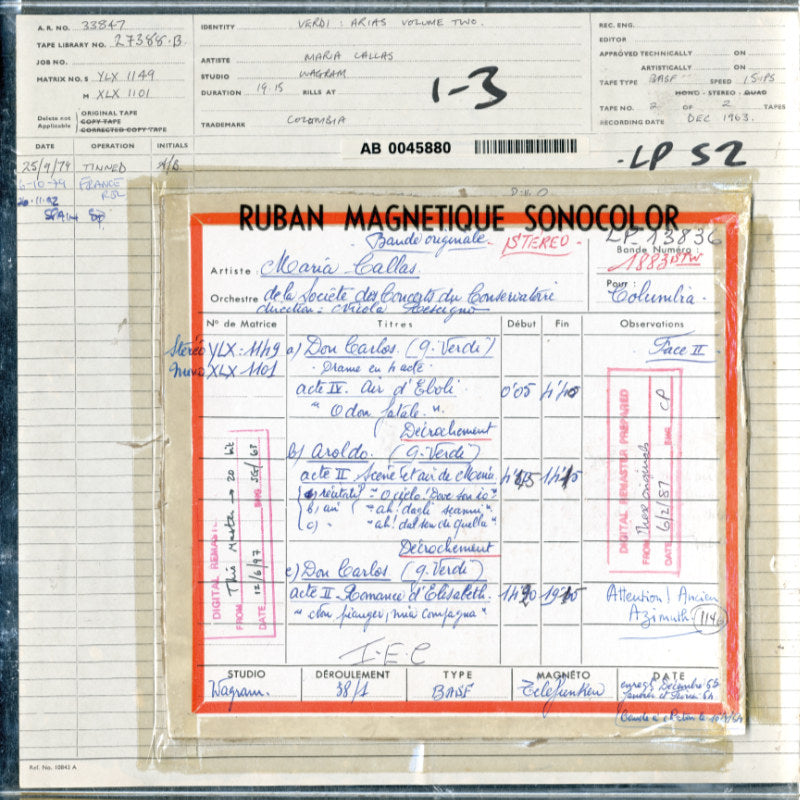 A.R. NO. 33847
TAPE LIBRARY NO. 27388.B.
JOB NO.
MATRIX NO. S YLX 1149
M XLX 1101
Delete not Applicable
ORIGINAL TAPE
COPY TAPE
CORRECTED COPY TAPE
IDENTITY VERDI : ARIAS VOLUME TWO.
ARTISTE MARIA CALLAS
STUDIO WAGRAM
DURATION 19 15 RILLS AT
TRADEMARK COLOMBIA
1-3
REC. ENG.
EDITOR
APPROVED TECHNICALLY ON
ARTISTICALLY ON
TAPE TYPE BASF SPEED 15 IPS
MONO - STEREO - QUAD
TAPE NO. 2 OF 2 TAPES
RECORDING DATE DEC 1963.
AB 0045880
-LP 52
DATE OPERATION INITIALS
25/9/79 TINNED A/B
6-10-79 FRANCE
26.11.92
SPAIN
RUBAN MAGNETIQUE SONOCOLOR
Bande originale. STÉRÉO -
LP 13836
Bande Numéro :
1883 STW
Artiste Maria Callas.
Pour : Columbia -
Orchestre de la Société des Concerts du Conservatoire
direction = Nicola Rescigno
N° de Matrice Titres Début Fin Observations
Stéréo YLX : 1149 a) Don Carlos. (G. Verdi) Face II
Mono XLX 1101 . Drame en 4 acte
acte IV. Air d'Eboli 0'05
" O don fatale. ".
Décrochement
b) Aroldo. (G. Verdi)
acte II Scène et air de Mina
a) récitatif = "O cielo! Dove son io"
b) air ( "ah! dagli scanni"
c) " "ah! dal sen di quella"
Décrochement
c) Don Carlos (G. Verdi)
acte II Romance d'Elisabeth.
"Non pianger, mia compagna"
Attention! Ancien
Azimuth 1146
I-E-C
DIGITAL REMAST
FROM This Master → 20 bit
DATE 12/6/97 ENG SG/
DIGITAL REMASTER PREPARED
FROM These originals
DATE 6/2/87 ENG CP
STUDIO DÉROULEMENT TYPE MAGNÉTO DATE
Wagram. 38/1 BASF Telefunken
Ref. No. 10843 A